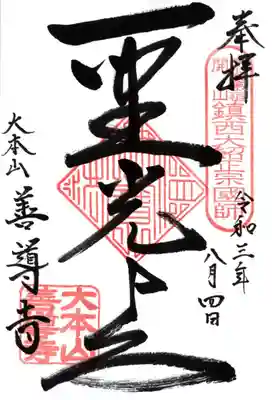 奉拝
令和三年
八月四日
開山
鎮西大紹正宗國師
聖光上人
大本山
善導寺
大本山
善導寺